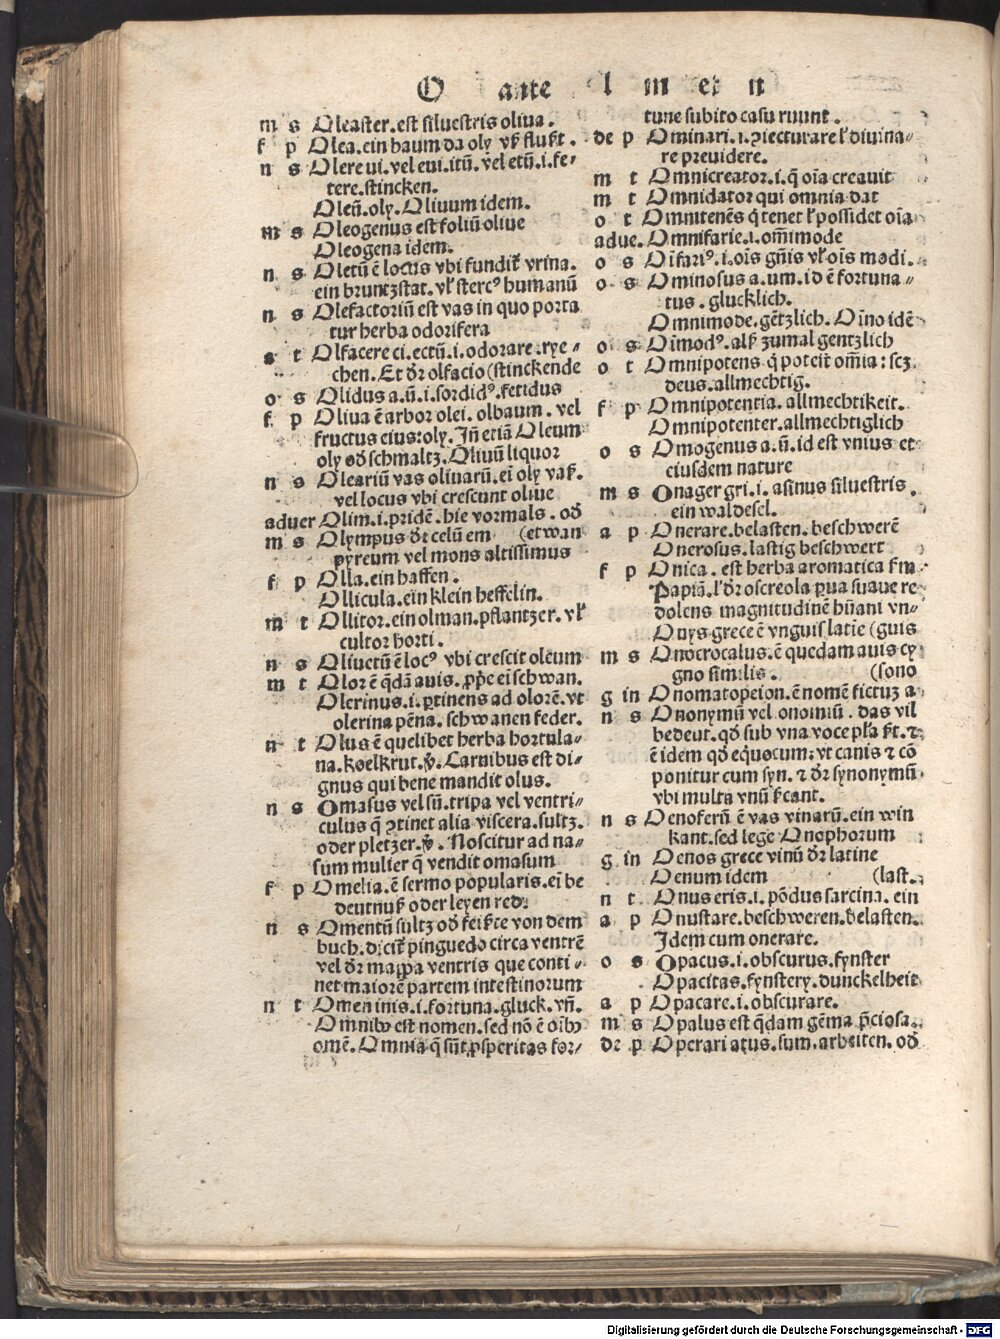 O ante l m et n
m s Oleaster.est siluestris oliua.
f p Olea.ein baum da oly vl̕ flußt.
n s Olere ui.vel eui.itū.vel etū.i.fe⸗
tere.stincken.
Oleū.oly.Oliuum idem.
m s Oleogenus est foliū oliue
Oleogena idem.
n s Oletū ē locus vbi fundit᷑ vrina.
ein bruntzstat.vl̕ stercꝰ humanū
n s Olefactoriū est vas in quo porta
tur herba odorifera
a t Olfacere ci.ectū.i.odorare.rye⸗
chen.Et dr̄ olfacio (stinckende
o s Olidus a.ū.i.sordidꝰ.fetidus
f p Oliua ē arbor olei.olbaum.vel
fructus eius:oly.Jn̄ etiā Oleum
oly od̕ schmaltz.Oliuū liquor
n s Oleariū vas oliuarū.ei oly vaß.
vel locus vbi crescunt oliue
aduer Olim.i.pridē.hie vormals.od̕
m s Olympus dr̄ celū em (etwan
pyreum vel mons altissimus
f p Olla.ein haffen.
Ollicula.ein klein heffelin.
m t Ollitor.ein olman.pflantzer.vl̕
cultor horti.
n s Oliuetū ē locꝰ vbi crescit oleum
m t Olor ē q̄dā auis.ꝓp̄e ei schwan.
Olerinus.i.ꝑtinens ad olorē.vt
olerina pēna.schwanen feder.
n t Olus ē quelibet herba hortula⸗
na.koelkrut.ꝟ.Carnibus est di⸗
gnus qui bene mandit olus.
n s Omasus vel sū.tripa vel ventri⸗
culus q̄ ꝯtinet alia viscera.sultz.
oder pletzer.ꝟ.Noscitur ad na⸗
sum mulier q̄ vendit omasum
f p Omelia.ē sermo popularis.ei be
deutnuß oder leyen red.
n s Omentū sultz od̕ feißte von dem
buch.dicit᷑ pinguedo circa ventrē
vel dr̄ mappa ventris que conti⸗
net maiorē partem intestinorum
n t Omen inis.i.fortuna.gluck.vn̄.
Omnibꝰ est nomen.sed nō ē oībꝰ
omē.Omnia q̄ sūt ꝓsperitas for⸗
tune subito casu ruunt.
de p Ominari.i.ꝯiecturare l̕ diuina⸗
re preuidere.
m t Omnicreator.i.q̄ oīa creauit
m t Omnidator qui omnia dat
o t Omnitenēs q̄ tenet l̕ possidet oīa
adue. Omnifarie.i.om̄imode
o s Oīfariꝰ.i.oīs gn̄is vl̕ oīs modi.
o s Ominosus a.um.id ē fortuna⸗
tus.glucklich.
Omnimode.gētzlich.Oīno idē
o s Oīmodꝰ.alß zumal gentzlich
o t Omnipotens q̄ poteit om̄ia:scz.
deus.allmechtig.
f p Omnipotentia.allmechtikeit.
Omnipotenter.allmechtiglich
o s Omogenus a.ū.id est vnius et
eiusdem nature
m s Onager gri.i.asinus siluestris.
ein waldesel.
a p Onerare.belasten.beschwerē
Onerosus.lastig beschwert
f p Onica.est herba aromatica fm̄
Papiā.l̕ dr̄ oscreola ꝑua suaue re
dolens magnitudinē hūani vn⸗
Onys grece ē vnguis latīe (guis
m s Onocrocalus.ē quedam auis cy
gno similis. (sono
g in Onomatopeion.ē nomē fictuꝫ a
n s Ononymū vel onomiū.das vil
bedeut.qd̕ sub vna voce pl̄a ß̄t.⁊
ē idem qd̕ equocum:vt canis ⁊ cō
ponitur cum syn.⁊ dr̄ synonymū
vbi multa vnū ß̄cant.
n s Oenoferū ē vas vinarū.ein win
kant.sed lege Onophorum
g in Oenos grece vinū dr̄ latine
Oenum idem (last.
n t Onus eris.i.pōdus sarcina.ein
a p Onustare.beschweren.belasten.
Jdem cum onerare.
o s Opacus.i.obscurus.fynster
Opacitas.fynstery.dunckelheit
a p Opacare.i.obscurare.
m s Opalus est q̄dam gēma p̄ciosa.
de p Operari atus.sum.arbeiten.od̕
Digitalisierung gefördert durch die Deutsche Forschungsgemeinschaft - DFG